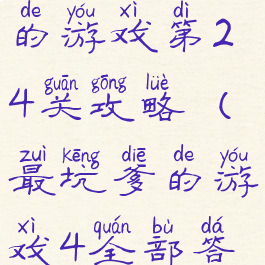 de yóu xì dì
的游戏第2
guān gōng lüè
4关攻略(
zuì kēng diē de yóu
最坑爹的游
xì quán bù dá
戏4全部答